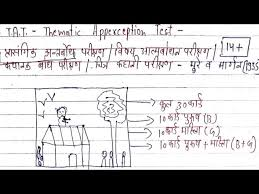 T.A.T. - Thematic Apperception Test -
प्रासंगिक अन्तर्बोध परीक्षण / विषय आत्मबोधन परीक्षण / 14+
कथानक बोध परीक्षण / चित्र कहानी परीक्षण - मुरे व मार्गन (1935
कुल 30 कार्ड
10 कार्ड पुरुष (B)
10 कार्ड महिला (G)
10 कार्ड पुरुष + महिला (B+G)